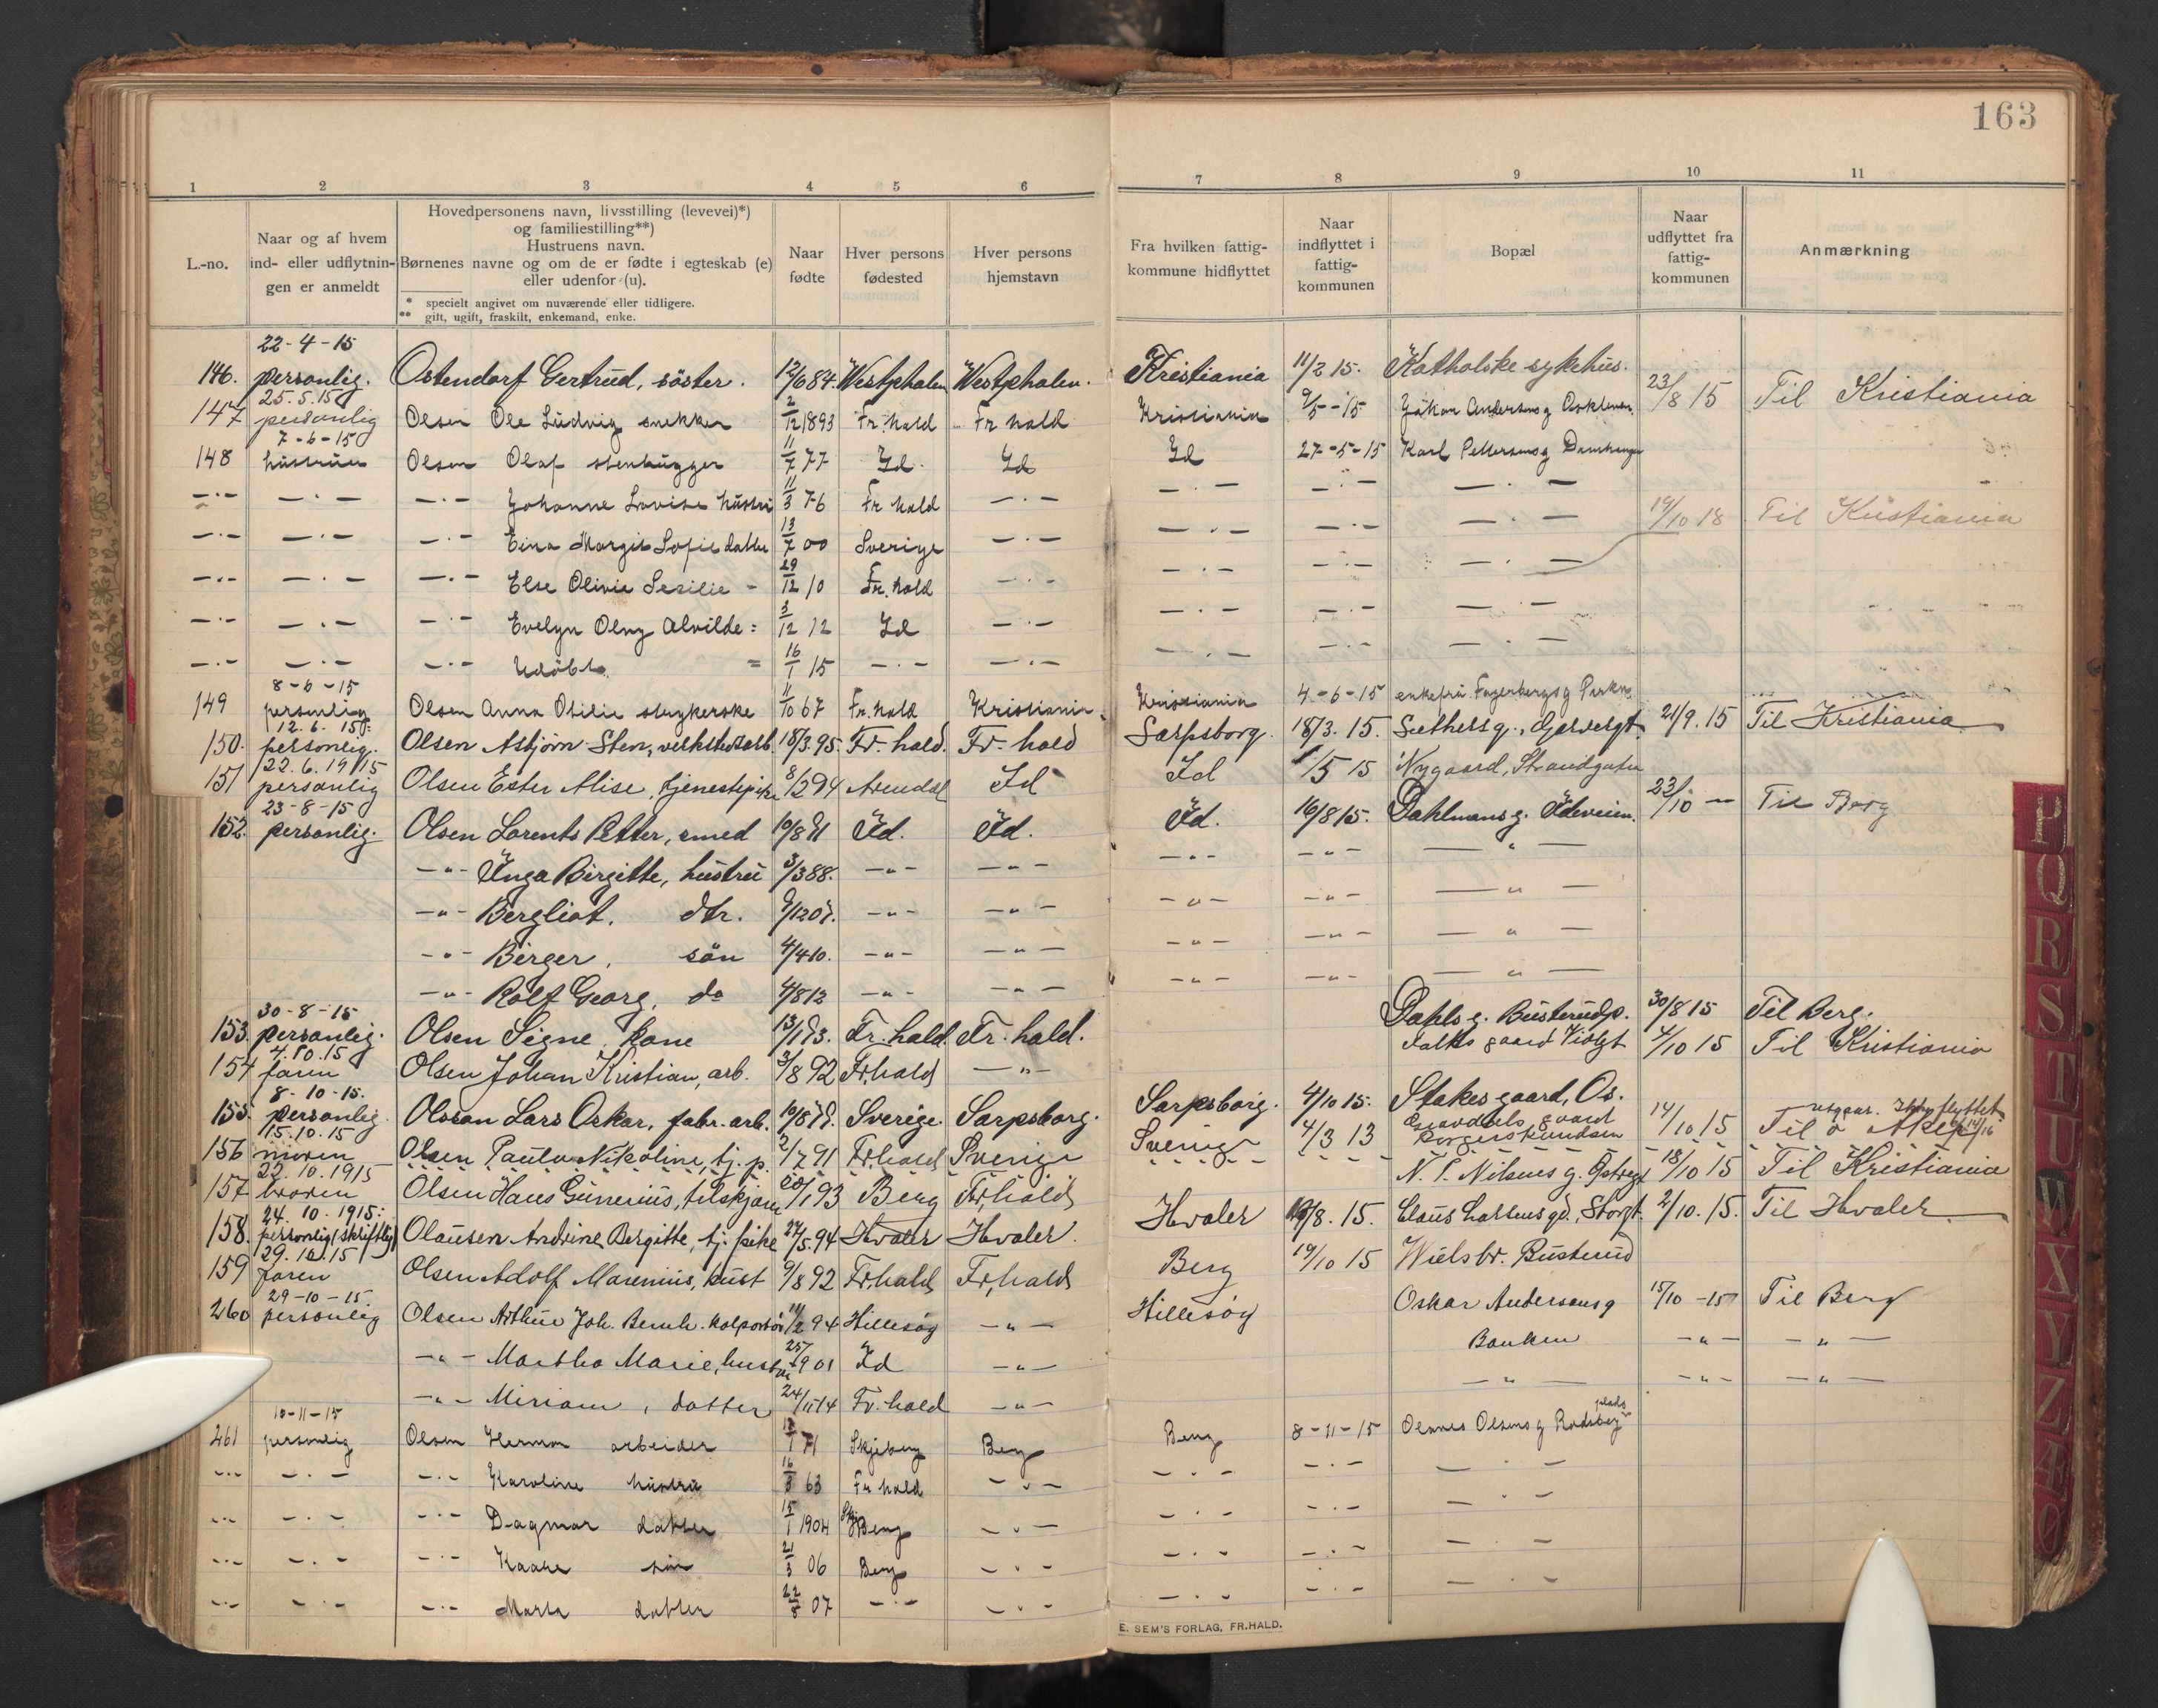 163
1 2 3 4 5 6 7 8 9 10 11
L.-no.
Naar og af hvem
ind- eller udflytnin-
gen er anmeldt
Hovedpersonens navn, livsstilling (levevei)*)
og familiestilling**)
Hustruens navn.
Børnenes navne og om de er fødte i egteskab (e)
eller udenfor (u).
* specielt angivet om nuværende eller tidligere.
** gift, ugift, fraskilt, enkemand, enke.
Naar
fødte
Hver persons
fødested
Hver persons
hjemstavn
Fra hvilken fattig-
kommune hidflyttet
Naar
indflyttet i
fattig-
kommunen
Bopæl
Naar
udflyttet fra
fattig-
kommunen
Anmærkning
22-4-15
146. personlig. Ostendorf Gertrud, söster. 12/6 84. Westphalen Westphalen. Kristiania 11/2 15. Katholske sykehus.
25.5.15
147 personlig Olsen Ole Ludvig snekker 2/12 1893 Fr.hald Fr hald Kristiania 9/5-15 Håkon Andersens g 23/8 15 Til Kristiania
7-6-15
148 hustruen Olsen Olaf stenhugger 11/7 77 Id Id Id 27-5-15 Karl Pettersens g
-"- -"- -"- Johanne Lovise hustru 11/3 76 Fr hald -"- -"- -"- -"-
-"- -"- -"- Eina Margit Sofie datter 13/7 00 Sverige -"- -"- -"- -"- 19/10 18 Til Kristiania
-"- -"- -"- Else Olivie Sesilie - 29/12 10 Fr. hald -"- -"- -"- -"-
-"- -"- -"- Evelyn Olny Alvilde = 3/12 12 Id -"- -"- -"- -"-
-"- -"- -"- Udöbt = 16/1 15 -"- -"- -"- -"- -"-
8-6-15
149 personlig Olsen Anna Otilie strykerske 11/10 67 Fr.hald Kristiania Kristiania 4-6-15 enkefru Fagerbergs g
12.6.15
150. personlig. Olsen Asbjørn Sten, verkstedsarb. 18/3 95. Fr. hald. Fr. hald Sarpsborg. 18/3. 15. 21/9. 15 Til Kristiania
22.6.1915
151 personlig Olsen Ester Alise, tjenestepike 8/2 94 Arendal Id Id 1/5 15 Nygaard, Strandgaten
23-8-15
152. personlig. Olsen Lorents Petter, smed 10/8 81 Id. Id. Id. 16/8 15. Dahlmans g. Ideveien. 23/10 - Til Berg
-"- Inga Birgitte, hustru 3/3 88. -"- -"- -"- -"- -"-
-"- Bergliot. dtr. 9/12 07. -"- -"- -"- -"- -"-
-"- Birger, sön 4/4 10. -"- -"- -"- -"- -"-
-"- Rolf Georg, do 4/8 12 -"- -"- -"- -"- -"-
30-8-15
153. personlig. Olsen Signe, kone 13/1 83. Fr. hald. Fr. hald. Dahls g. Busterudp. 30/8 15 Til Berg.
4.10.15
154 faren Olsen Johan Kristian, arb. 3/8 92 Fr.hald -"- Falks gaard Violgt 4/10 15 Til Kristiania
8-10-15.
155. personlig. Olsson Lars Oskar, fabr. arb. 10/8 78. Sverige Sarpsborg. Sarpsborg. 4/10 15. Stakes gaard, Os.
15.10.15
156 moren Olsen Paula Nikoline, tj. p. 2/7 91 Fr.hald Sverige Sverige 4/3 13 14/10 15 Til
22.10.1915
157 broren Olsen Hans Gunerius, tilskjærer 20/1 93 Berg Fr.hald N. P. Nilsens g. 18/10 15 Til Kristiania
24.10.1915:
158. personlig (skriftlig) Olausen Andrine Bergitte, tj. pike 27/5. 94 Hvaler Hvaler. Hvaler 19/8. 15. Claus Larsens gd., Storgt. 2/10. 15. Til Hvaler
29.10.15
159 faren Olsen Adolf Marenius, kust 9/8 92 Fr.hald Fr.hald Berg 19/10 15 Wiels br. Busterud
29-10-15
260 personlig Olsen Arthur Joh. Bernh. kolportör 14/2 94 Hillesöy -"- Hillesöy Oskar Andersens g 15/10-15 Til Berg
-"- Martha Marie, hustru 25/9 01 Id -"- Banken -"- -"-
-"- Miriam, datter 24/11 14 Fr. hald -"- -"- -"- -"-
10-11-15
261 personlig Olsen Herman arbeider 18/1 71 Skjeberg Berg Berg 8-11-15 Olsens g Rødsberg plads
-"- -"- -"- Karoline hustru 16/8 63 Fr hald -"- -"- -"- -"-
-"- -"- -"- Dagmar datter 15/1 1904 Berg -"- -"- -"- -"-
-"- -"- -"- Kaare sön 21/3 06 Berg -"- -"- -"- -"-
-"- -"- -"- Marta datter 22/8 07 -"- -"- -"- -"- -"-
E. SEM'S FORLAG, FR.HALD.
P
Q
R
S
T
U
W
X
Y
Z
Æ
Ø